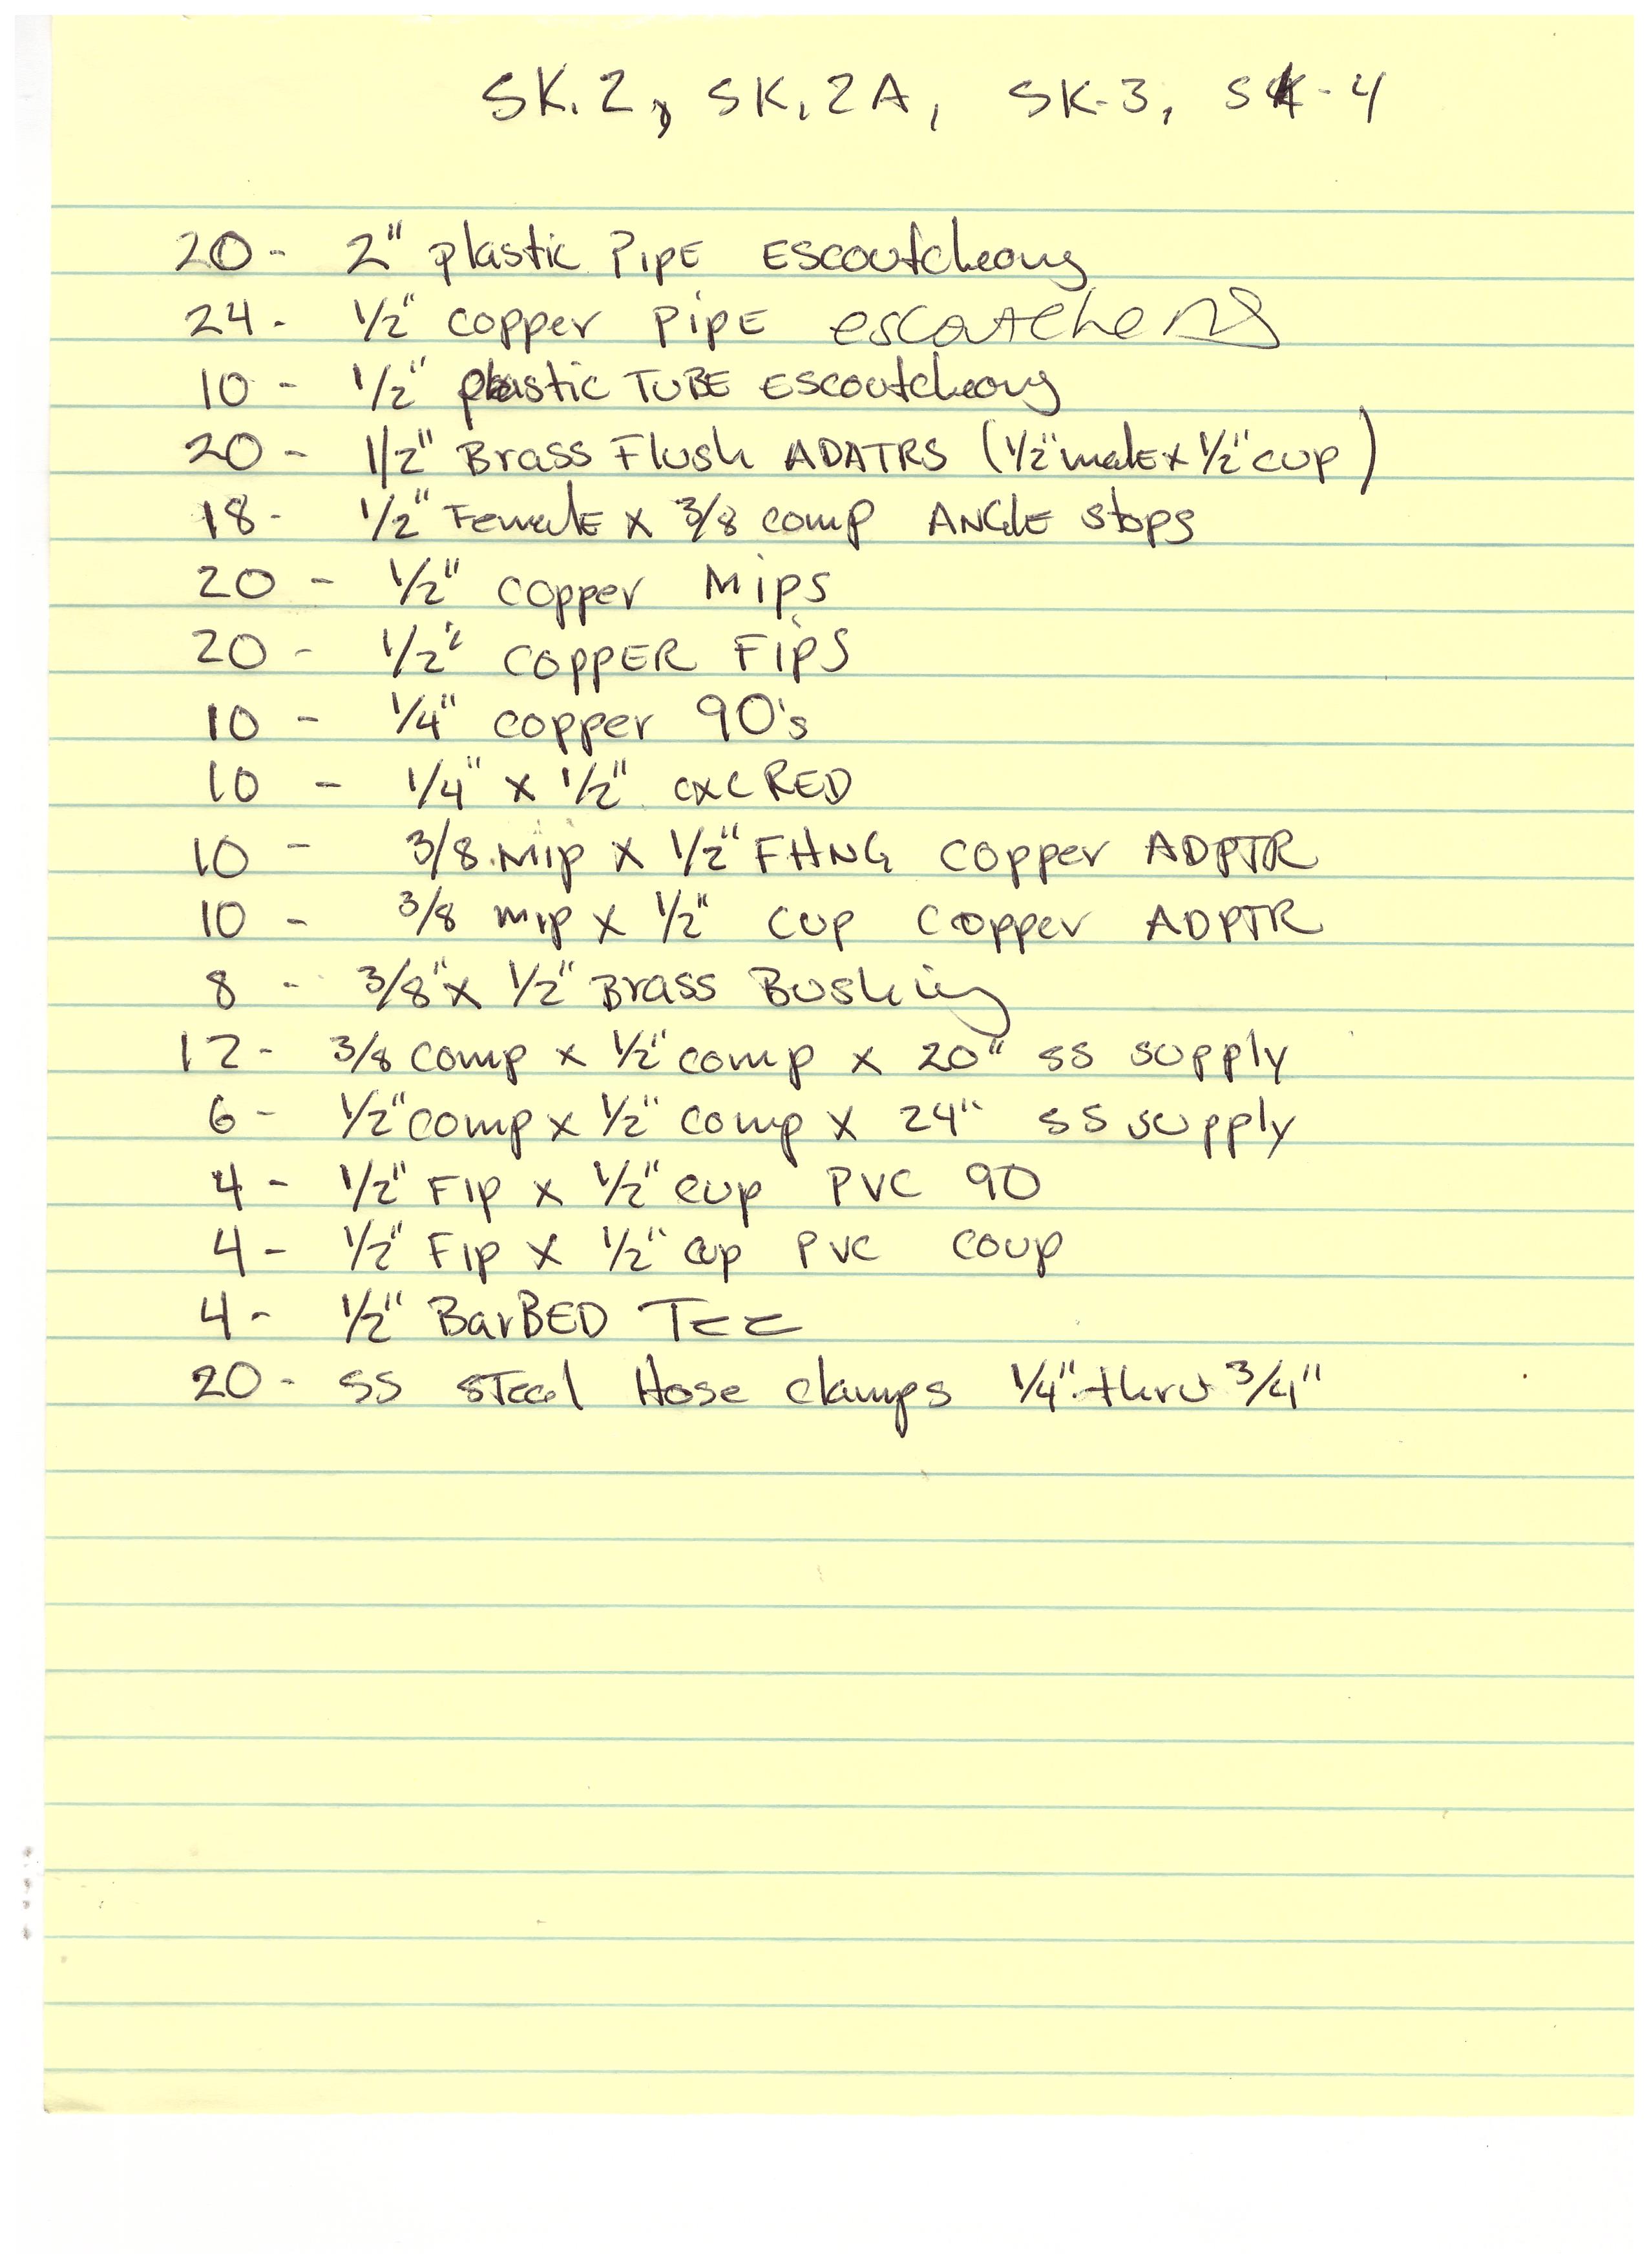 SK.2, SK.2A, SK-3, SK-4
20 - 2" plastic PIPE ESCOUTCHEONS
24 - 1/2" copper PIPE escoutchens
10 - 1/2" plastic TUBE ESCOUTCHEONS
20 - 1/2" Brass Flush ADATRS (1/2" male x 1/2" cup)
18 - 1/2" Female x 3/8 comp ANGLE stops
20 - 1/2" copper Mips
20 - 1/2" COPPER FIPS
10 - 1/4" copper 90's
10 - 1/4" x 1/2" CXC RED
10 - 3/8 Mip x 1/2" FHNG Copper ADPTR
10 - 3/8 mip x 1/2" cup Copper ADPTR
8 - 3/8" x 1/2" Brass Bushing
12 - 3/8 comp x 1/2" comp x 20" SS supply
6 - 1/2" comp x 1/2" comp x 24" SS supply
4 - 1/2" Fip x 1/2" cup PVC 90
4 - 1/2" Fip x 1/2" cup PVC coup
4 - 1/2" BarBED TEE
20 - SS steel Hose clamps 1/4" thru 3/4"